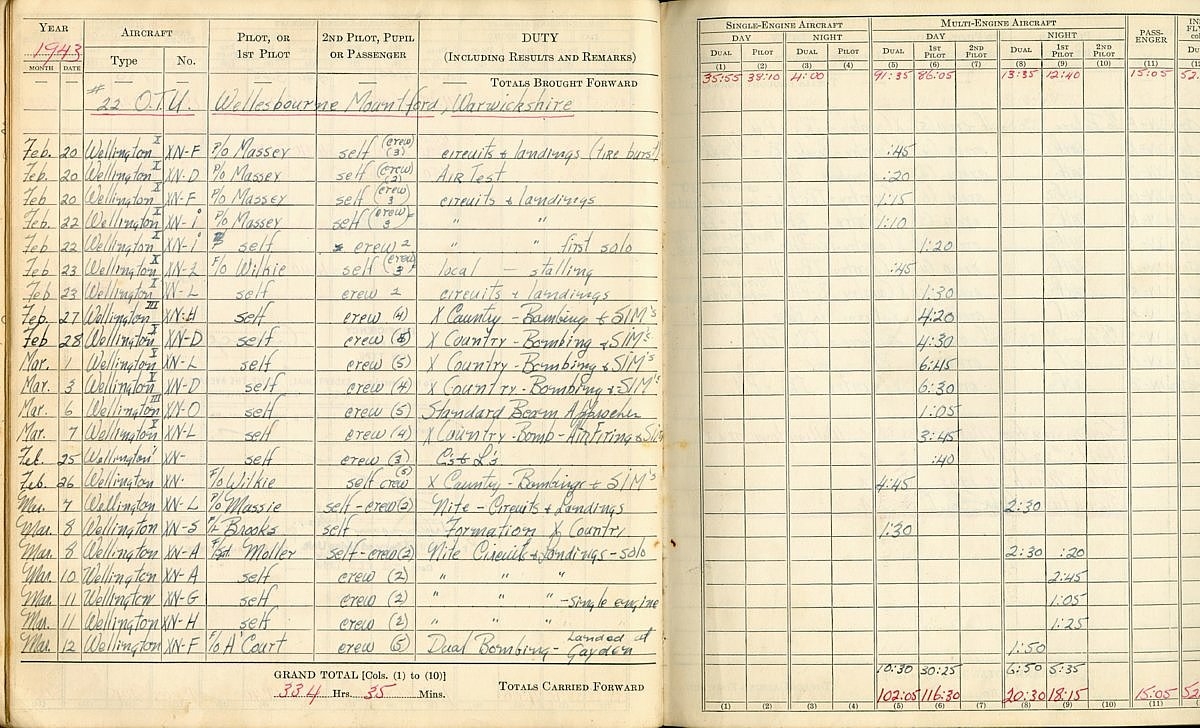 YEAR 1943 AIRCRAFT PILOT, OR 1ST PILOT 2ND PILOT, PUPIL OR PASSENGER DUTY (INCLUDING RESULTS AND REMARKS) SINGLE-ENGINE AIRCRAFT MULTI-ENGINE AIRCRAFT PASS-ENGER
DAY NIGHT DAY NIGHT
MONTH DATE Type No. DUAL PILOT DUAL PILOT DUAL 1ST PILOT 2ND PILOT DUAL 1ST PILOT 2ND PILOT
(1) (2) (3) (4) (5) (6) (7) (8) (9) (10) (11)
— — — — TOTALS BROUGHT FORWARD 35:55 38:10 4:00 91:35 86:05 13:35 12:40 15:05 52
#22 O.T.U. Wellesbourne Mountford, Warwickshire
Feb. 20 Wellington X XN-F P/O Massey self (crew) (3) circuits & landings (tire burst) :45
Feb. 20 Wellington X XN-D P/O Massey self (crew) (2) Air Test :20
Feb. 20 Wellington X XN-F P/O Massey self (crew) 3 circuits & landings 1:15
Feb. 22 Wellington X XN-i P/O Massey self (crew) 3 " " 1:10
Feb 22 Wellington X XN-i self crew 2 " " first solo 1:20
Feb 23 Wellington X F/O Wilkie self (crew) 3 local — stalling :45
Feb 23 Wellington X XN-L self crew 2 circuits & landings 1:30
Feb 27 Wellington III XN-H self crew (4) X County - Bombing & SIM's 4:20
Feb 28 Wellington X XN-D self crew X Country - Bombing & SIM's 4:30
Mar. 1 Wellington X XN-L self crew (5) X Country - Bombing & SIM's 6:45
Mar. 3 Wellington X XN-D self crew (4) X Country - Bombing & SIM's 6:30
Mar. 6 Wellington III XN-O self crew (5) Standard Beam 1:05
Mar. 7 Wellington X XN-L self crew (4) X Country - Bomb - Air Firing & SIM 3:45
Feb. 25 Wellington XN- self crew (3) C's & L's :40
Feb. 26 Wellington XN- F/O Wilkie self crew (3) X County - Bombing & SIM's 4:45
Mar. 7 Wellington XN-L P/O Massie self-crew (2) Nite - Circuits & Landings 2:30
Mar. 8 Wellington XN-S Brooks self Formation X Country 1:30
Mar. 8 Wellington XN-A F/Sgt. Moller self-crew (2) Nite Circuits & Landings - solo 2:30 :20
Mar. 10 Wellington XN-A self crew (2) " " " 2:45
Mar. 11 Wellington XN-G self crew (2) " " " - single engine 1:05
Mar. 11 Wellington XN-H self crew (2) " " " 1:25
Mar. 12 Wellington XN-F F/O A'Court crew (5) Dual Bombing - Landed at Gaydon 1:50
10:30 30:25 6:50 5:35
GRAND TOTAL [Cols. (1) to (10)]
334 Hrs. 35 Mins. TOTALS CARRIED FORWARD 102:05 116:30 20:30 18:15 15:05 52
(1) (2) (3) (4) (5) (6) (7) (8) (9) (10) (11)